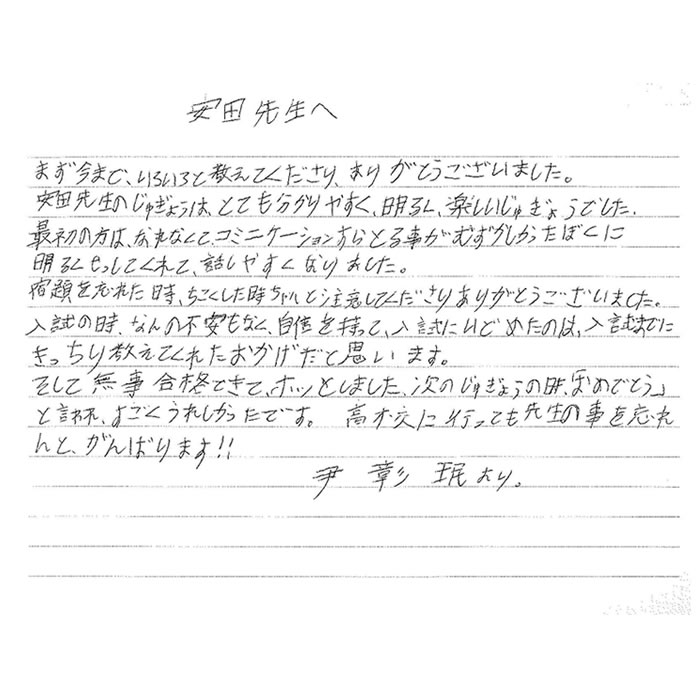 安田先生へ
まず今まで、いろいろと教えてくださり、ありがとうございました。
安田先生のじゅぎょうは、とても分かりやすく、明るく、楽しいじゅぎょうでした。
最初の方は、なれなくて、コミニケーションすらとる事がむずかしかったぼくに
明るくせっしてくれて、話しやすくなりました。
宿題を忘れた時、ちこくした時ちゃんと注意してくださりありがとうございました。
入試の時、なんの不安もなく、自信を持って、入試にいどめたのは、入試までに
きっちり教えてくれたおかげだと思います。
そして無事合格できて、ホッとしました、次のじゅぎょうの時、「おめでとう」
と言われ、すごくうれしかったです。 高校に行っても先生の事を忘れ
んと、がんばります!!
尹 彰 珉より。